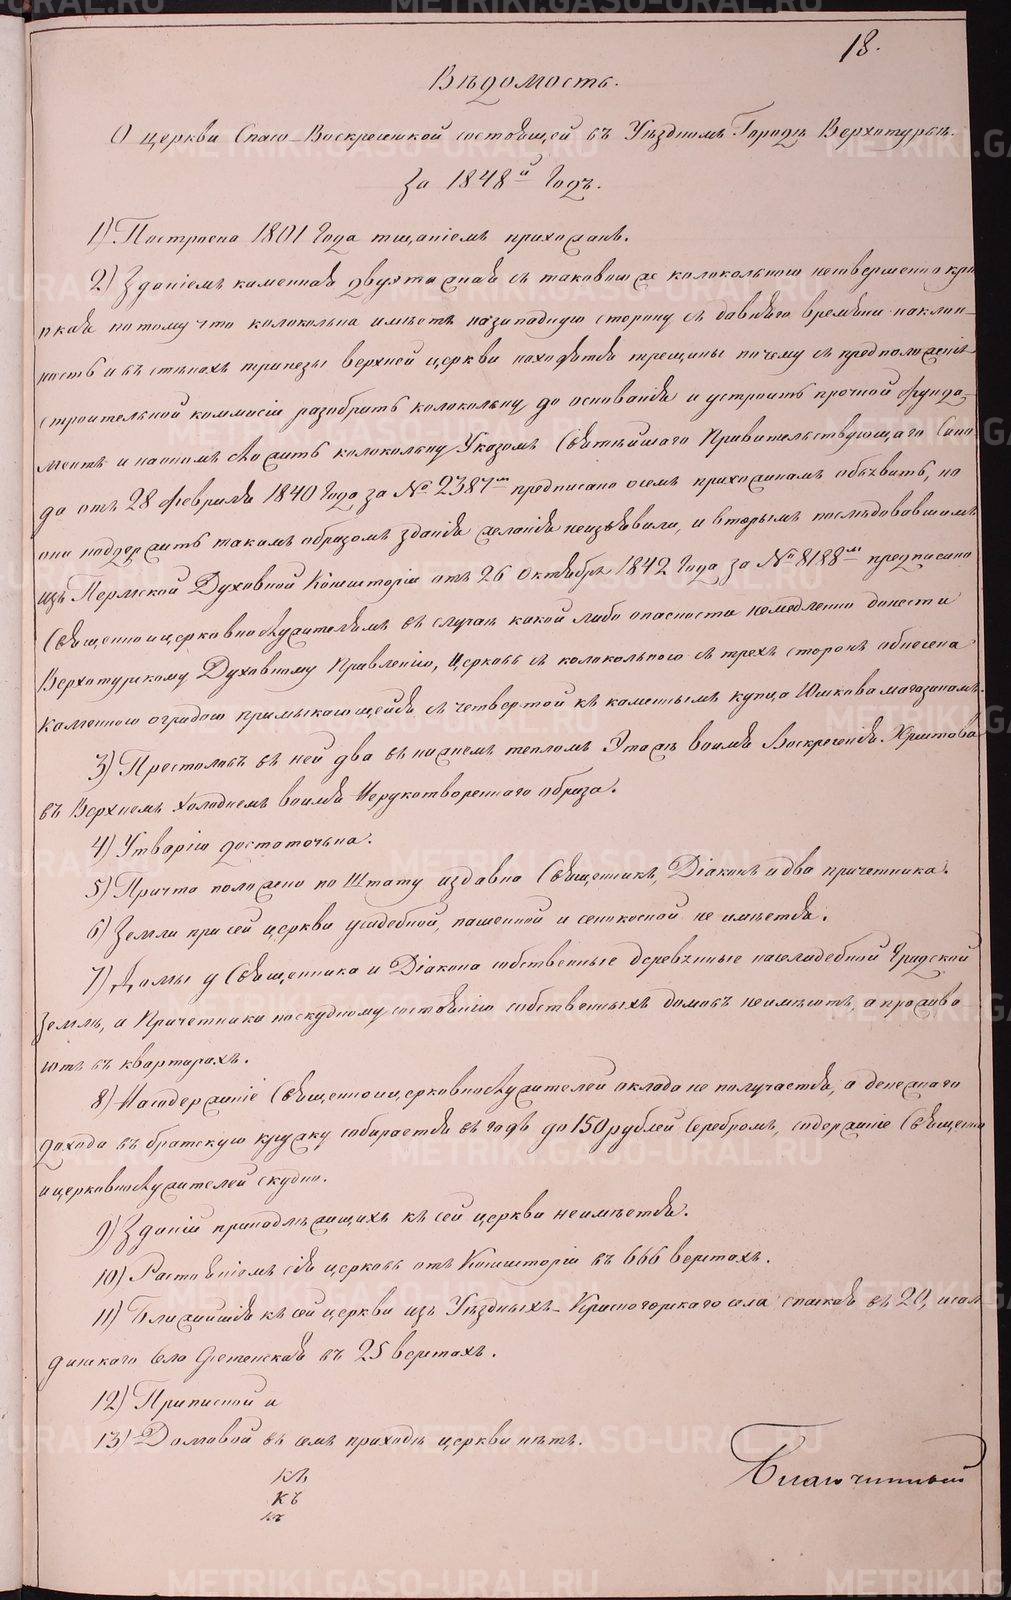 18.
Вѣдомость.
О церкви Спасо-Воскресенской состоящей въ Уѣздномъ Городѣ Верхотурьѣ.
За 1848й Годъ.
1) Построена 1801 Года тщаніемъ прихожанъ.
2) Зданіемъ каменная двухэтажная съ таковою же колокольнею несовершенно крѣ
пкая потому что колокольна имѣетъ на западную сторону съ давняго времѣни наклон-
ность и въ стѣнахъ трапезы верхней церкви находятся трещины почему съ предположеніѣ
строительной коммисіи разобрать колокольну до основанія и устроить прочной Фунда-
ментъ и на ономъ сложить колокольну Указомъ Святѣйшаго Правительствующаго Сино
да отъ 28 февраля 1840 Года за № 2387мъ предписано о семъ прихожанамъ объявить, но
они поддержать такимъ образомъ зданія желанія неизъявили, и вторымъ послѣдовавшимъ
изъ Пермской Духовной Консисторіи отъ 26 Октября 1842 Года за № 8188мъ предписано
Священноицерковнослужителямъ въ случаѣ какой либо опасности немедленно донести
Верхотурскому Духовному Правленію, Церковь съ колокольнею съ трехъ сторонъ обнесена
каменною оградою примыкающейся съ четвертой къ каменнымъ купца Юшкова магазинамъ.
3) Престоловъ въ ней два въ нижнемъ тепломъ Этажѣ во имя Воскресенія Христова
въ Верхнемъ холодномъ во имя Нерукотвореннаго образа.
4) Утварію достаточна.
5) Причта положено по Штату издавна Священникъ, Діаконъ и два причетника.
6) Земли при сей церкви усадебной, пашенной и сенокосной не имѣется.
7) Домы у Священника и Діакона собственные деревянные на селидебной Градской
Землѣ, а Причетники по скудному состоянію собственныхъ домовъ неимѣютъ, а прожива
ютъ въ квартирахъ.
8) На содержаніе Священноицерковнослужителей оклада не получается, а денежнаго
дохода въ братскую кружку собирается въ годъ до 150 рублей Серебромъ, содержаніе Священно
ицерковнослужителей скудно.
9) Зданій принадлѣжащихъ къ сей церкви неимѣется.
10) Растояніемъ сія церковь отъ Консисторіи въ 666 верстахъ.
11) Ближайшія къ сей церкви изъ Уѣздныхъ Красногорскаго села Спаская въ 20, и сал
динскаго села Срѣтенская въ 25 верстахъ.
12) Приписной и
13) Домовой въ семъ приходѣ церкви нѣтъ.
Благочинный
къ
къ
къ